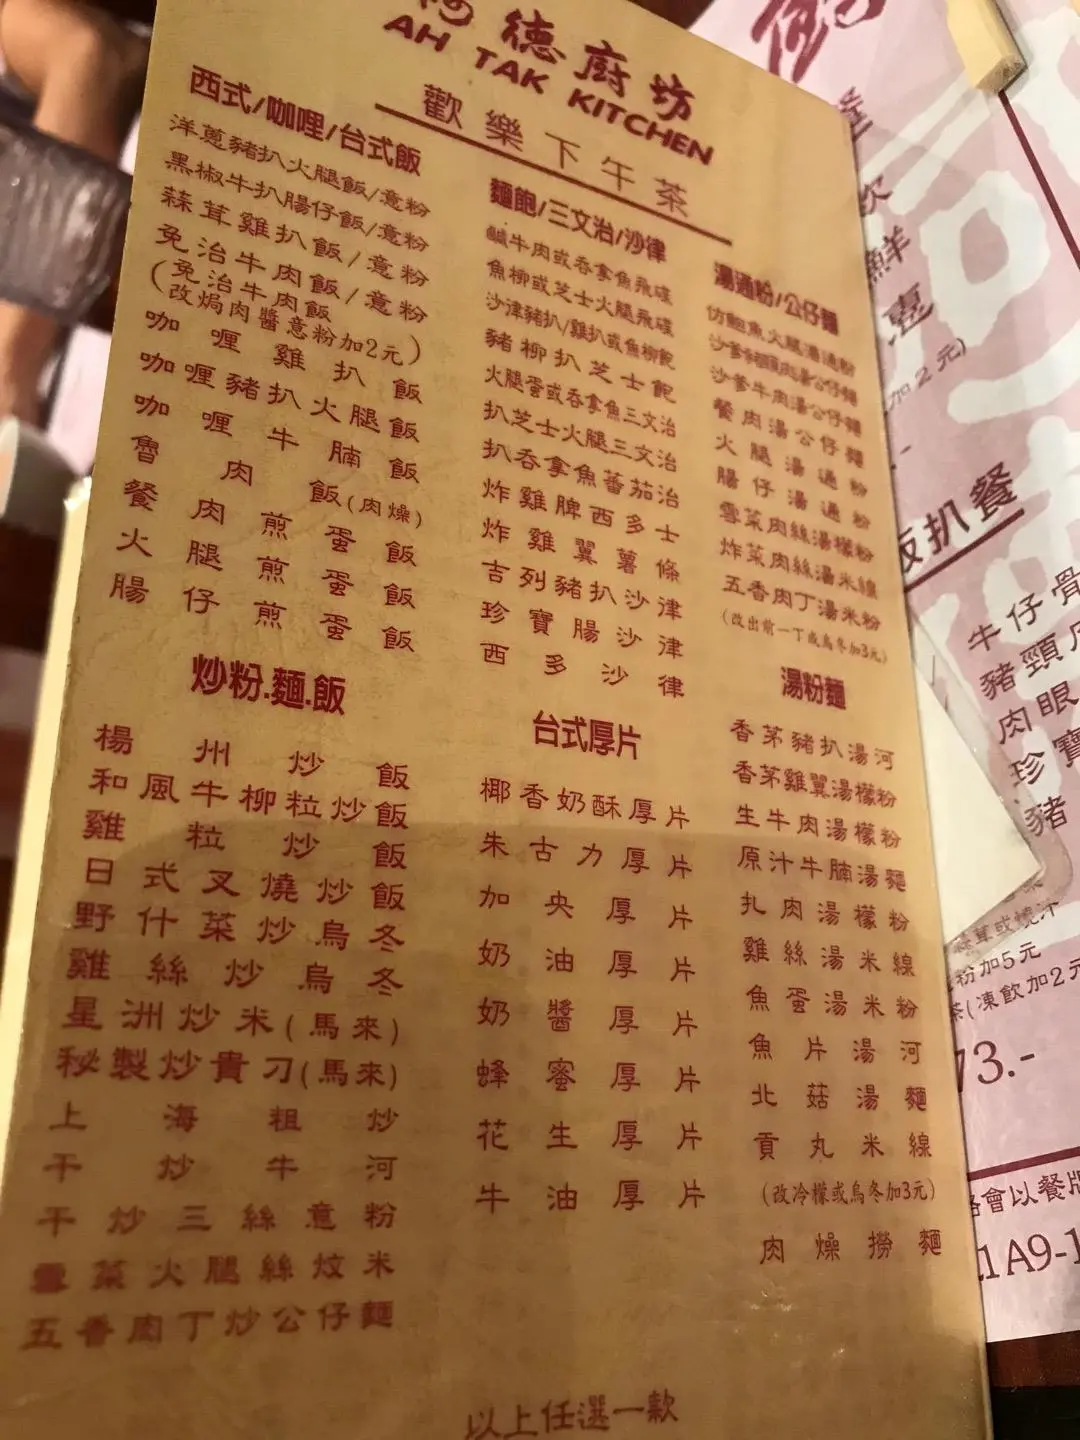 阿德廚坊
AH TAK KITCHEN
歡樂下午茶
西式/咖哩/台式飯
洋蔥豬扒火腿飯/意粉
黑椒牛扒腸仔飯/意粉
蒜茸雞扒飯/意粉
免治牛肉飯/意粉
(免治牛肉飯
改焗肉醬意粉加2元)
咖喱雞扒飯
咖喱豬扒火腿飯
咖喱牛腩飯
魯肉飯(肉燥)
餐肉煎蛋飯
火腿煎蛋飯
腸仔煎蛋飯
炒粉.麵.飯
楊州炒飯
和風牛柳粒炒飯
雞粒炒飯
日式叉燒炒飯
野什菜炒烏冬
雞絲炒烏冬
星洲炒米(馬來)
秘製炒貴刁(馬來)
上海粗炒
干炒牛河
干炒三絲意粉
雪菜火腿絲炆米
五香肉丁炒公仔麵
麵飽/三文治/沙律
鹹牛肉或吞拿魚飛碟
魚柳或芝士火腿飛碟
沙律豬扒/雞扒或魚柳飽
豬柳扒芝士飽
火腿蛋或吞拿魚三文治
扒芝士火腿三文治
扒吞拿魚蕃茄治
炸雞脾西多士
炸雞翼薯條
吉列豬扒沙律
珍寶腸沙律
西多沙律
台式厚片
椰香奶酥厚片
朱古力厚片
加央厚片
奶油厚片
奶醬厚片
蜂蜜厚片
花生厚片
牛油厚片
湯通粉/公仔麵
仿鮑魚火腿湯通粉
沙爹豬頸肉湯公仔麵
沙爹牛肉湯公仔麵
餐肉湯公仔麵
火腿湯通粉
腸仔湯通粉
雪菜肉絲湯檬粉
炸菜肉絲湯米線
五香肉丁湯米粉
(改出前一丁或烏冬加3元)
湯粉麵
香茅豬扒湯河
香茅雞翼湯檬粉
生牛肉湯檬粉
原汁牛腩湯麵
扎肉湯檬粉
雞絲湯米線
魚蛋湯米粉
魚片湯河
北菇湯麵
貢丸米線
(改冷檬或烏冬加3元)
肉燥撈麵
以上任選一款
飲
鮮
加2元)
扒餐
牛仔骨
豬頸
肉眼
珍寶
豬
蒜茸或燒汁
粉加5元
茶(凍飲加2元
73.-
會以餐牌
1A9-1